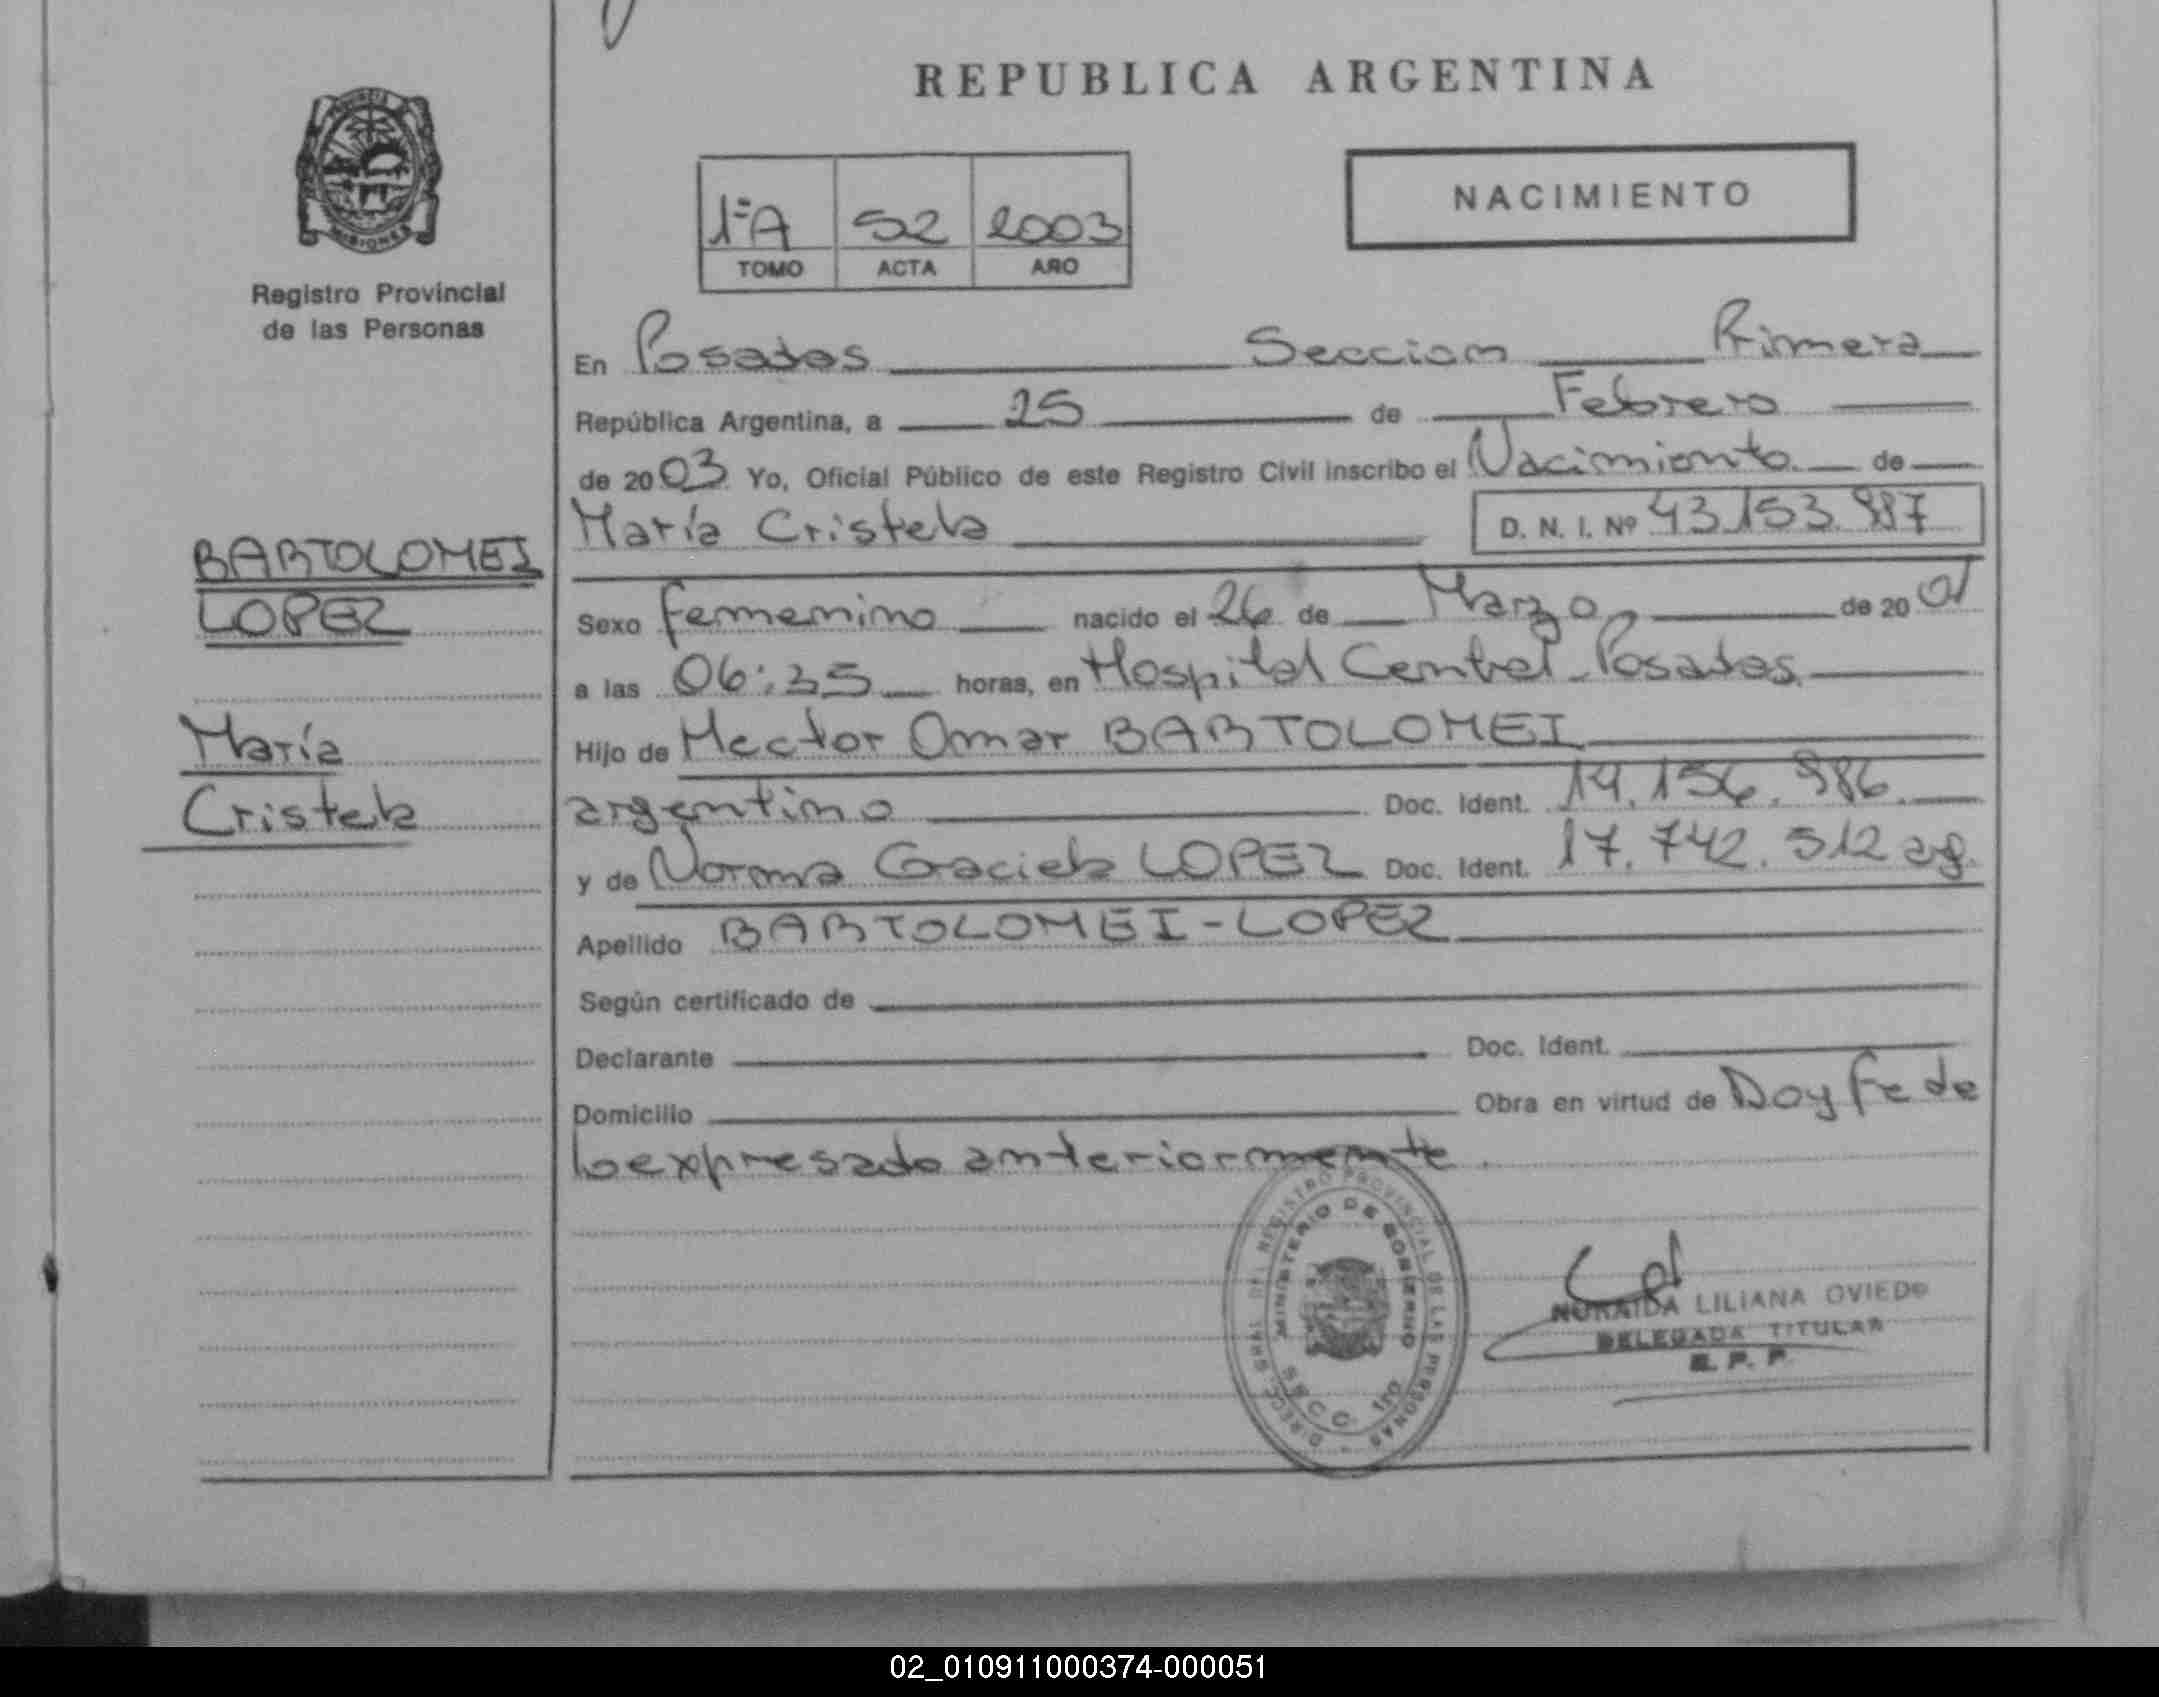 REPUBLICA ARGENTINA
NACIMIENTO
1ºA 52 2003
TOMO ACTA AÑO
PROVINCIA DE MISIONES
Registro Provincial
de las Personas
BARTOLOMEI
LOPEZ
María
Cristela
En Posadas Seccion Primera
República Argentina, a 25 de Febrero
de 2003 Yo, Oficial Público de este Registro Civil inscribo el Nacimiento de
María Cristela D. N. I. Nº 43.153.987
Sexo femenino nacido el 26 de Marzo de 2001
a las 06:35 horas, en Hospital Central - Posadas
Hijo de Hector Omar BARTOLOMEI
argentino Doc. Ident. 14.156.986
y de Norma Graciela LOPEZ Doc. Ident. 17.742.512 arg.
Apellido BARTOLOMEI - LOPEZ
Según certificado de
Declarante Doc. Ident.
Domicilio Obra en virtud de Doy fe de
lo expresado anteriormente.
DIRECC. GRAL. DEL REGISTRO PROVINCIAL DE LAS PERSONAS
MINISTERIO DE GOBIERNO
SECC. 1ra
LILIANA OVIEDO
DELEGADA TITULAR
R. P. P.
02_010911000374-000051